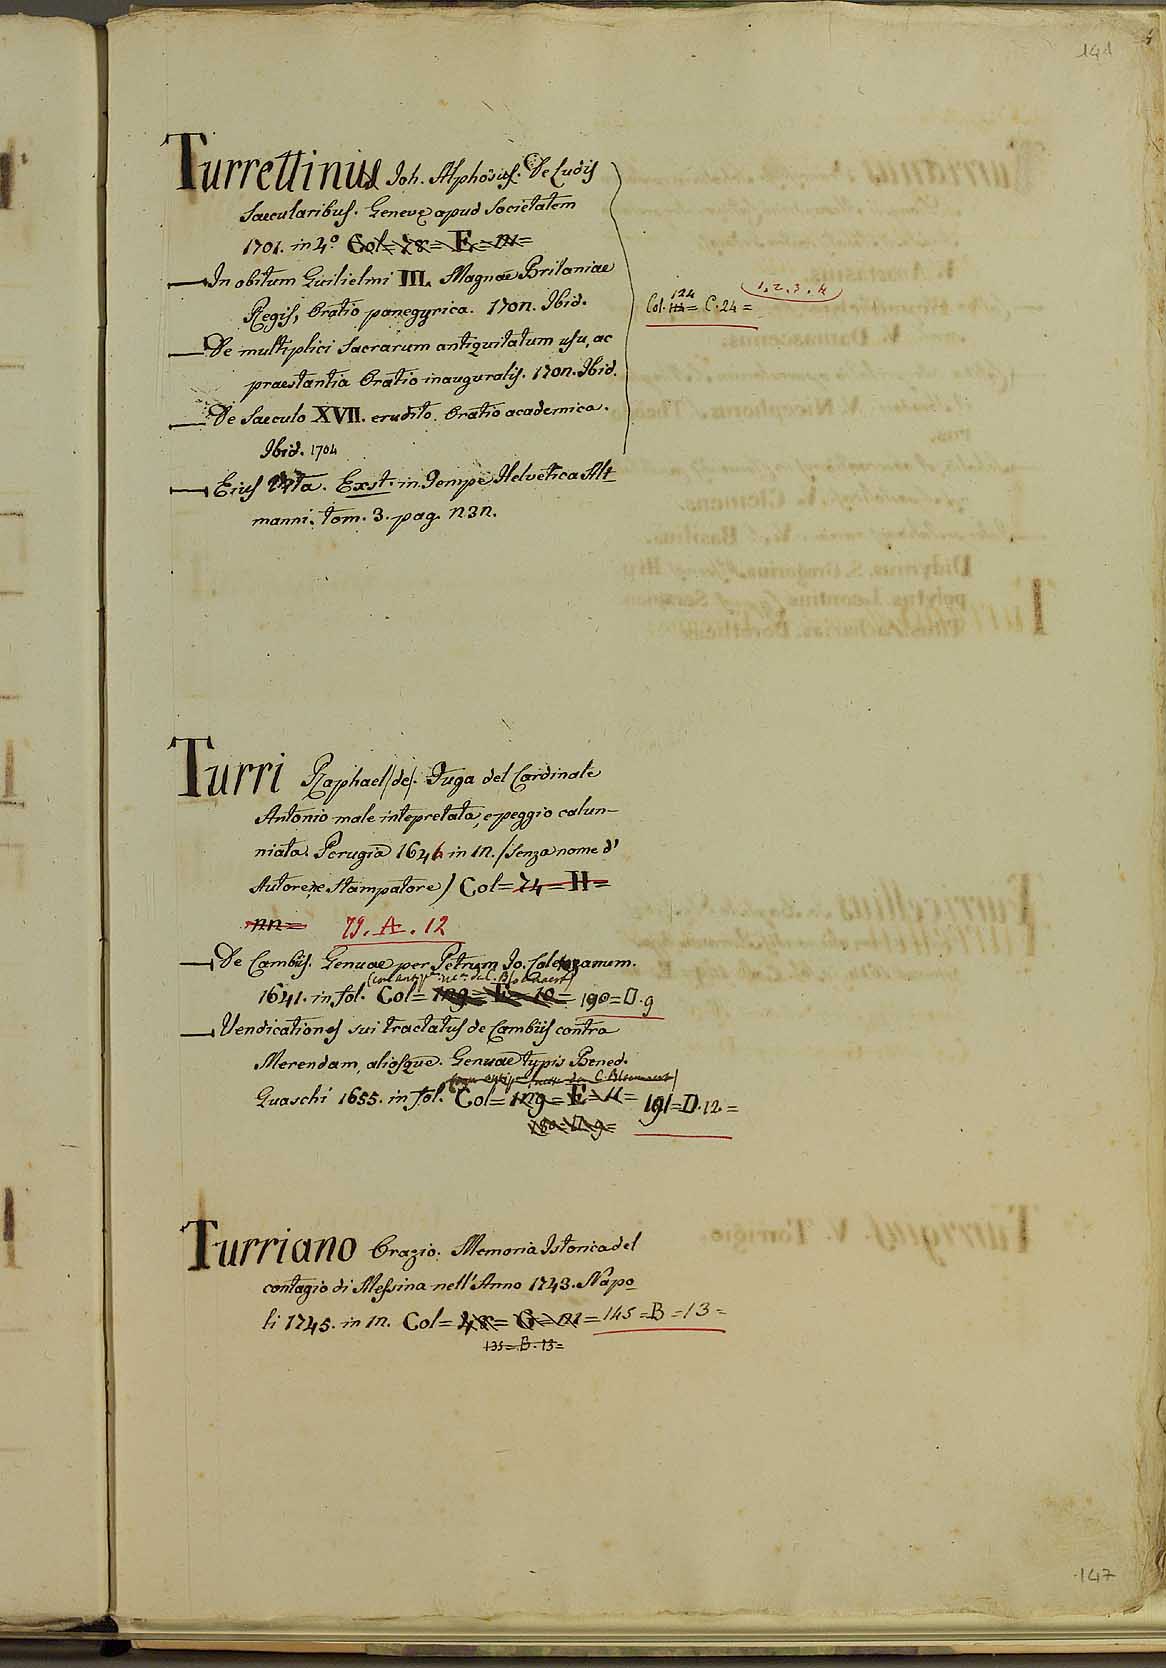 141
Turrettinius Joh. Alphósus. De Ludis
Saecularibus. Genevę apud Societatem
1701. in 4º Col= = E = =
In obitum Guilielmi III. Magnae Britaniae
Regis, Oratio panegyrica. 1702. Ibid.
De multiplici Sacrarum antiquitatum usu, ac
praestantia Oratio inauguralis. 1702. Ibid.
De Saeculo XVII. erudito. Oratio academica.
Ibid. 1704
1. 2. 3. 4
Col. 124 = C. 24 =
Eius Vita. Exst. in Tempe Helvetica Alt
manni. tom. 3. pag. 232.
Turri Raphael /de/. Fuga del Cardinale
Antonio male intepretata, e peggio calun-
niata. Perugia 1646 in 12. /Senza nome d'
Autore, e Stampatore/ Col= 74 = H =
22 = 79. A. 12
De Cambiis. Genuae per Petrum Jo.
1641. in fol. Col= 129 = E = 10 = 190 = D. 9
Vendicationes sui tractatus de Cambiis contra
Merendam, aliosque. Genuae typis Bened.
Guaschi 1655. in fol. Col= 129 = E = 11 = 191 = D. 12 =
= D. 9 =
Turriano Orazio. Memoria Istorica del
contagio di Messina nell'Anno 1743. Napo
li 1745. in 12. Col= = G = = 145 = B = 13 =
135 = B. 13 =
147